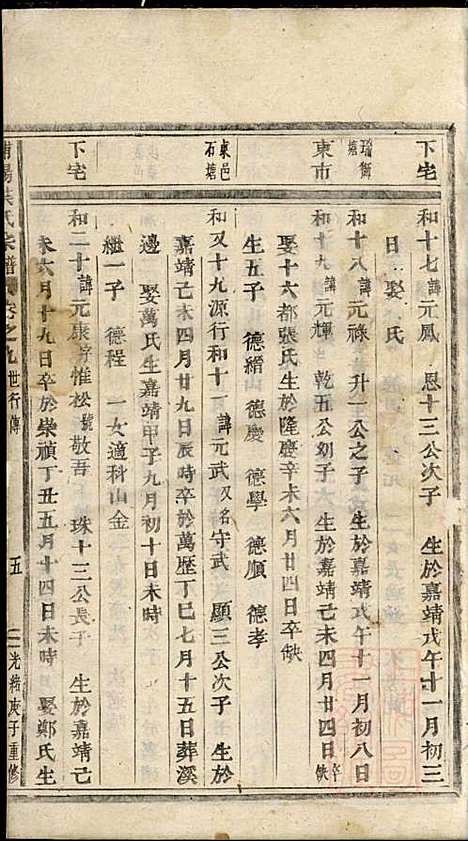 下宅
和十七諱元鳳 恩十三公次子 生於嘉靖戊午十一月初三
日 娶 氏
瑞街塘
和十八諱元祿 升一公之子 生於嘉靖戊午十一月初八日
東市
和十九諱元輝 乾五公幼子 生於嘉靖己未四月廿四日卒缺
娶十六都張氏生於隆慶辛未六月廿四日卒缺
生五子 德縉 德慶 德學 德順 德孝
東邑石塘
和又十九源行和十一諱元武又名守武 顯三公次子 生於
嘉靖己未四月廿九日辰時卒於萬歷丁巳七月十五日葬溪
邊 娶萬氏生嘉靖甲子九月初十日未時
繼一子 德程 一女適科山金
下宅
和二十諱元康字惟松號敬吾 珠十三公長子 生於嘉靖己
未六月十九日卒於崇禎丁丑五月十四日未時 娶鄭氏生
氏宗譜 卷之九世行傳 五 光緒庚子重修